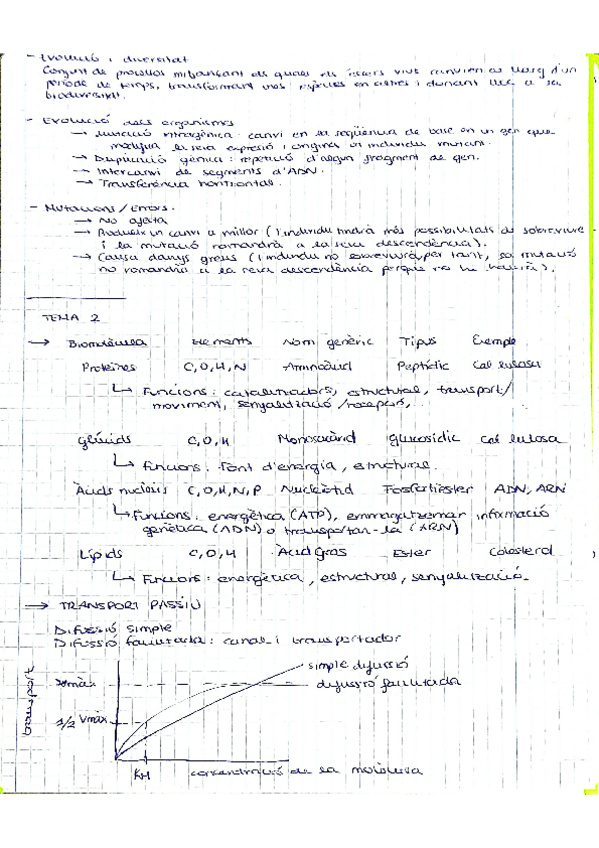 - Evolució i diversitat
Conjunt de processos mitjançant els quals els éssers vius canvien al llarg d'un
període de temps, transformant unes espècies en altres i donant lloc a la
biodiversitat.
- Evolució dels organismes
→ Mutació intragènica: canvi en la seqüència de base en un gen que
modifica la seva expresió i origina un individu mutant.
→ Duplicació gènica: repetició d'algun fragment de gen.
→ Intercanvi de segments d'ADN.
→ Transferència horitzontal.
- Mutacions / Errors.
→ No afecta
→ Produeix un canvi a millor (l'individu tindrà més possibilitats de sobreviure
i la mutació romandrà a la seva descendència).
→ Causa danys greus (l'individu no sobreviurà, per tant, sa mutació
no romandrà a la seva descendència perquè no hi haurà).
TEMA 2
→ Biomolècula Elements Nom genèric Tipus Exemple
Proteïnes C, O, H, N Aminoàcid Peptídic
↳ Funcions: catalitzadors, estructural, transport/
moviment, senyalització/recepció,...
Glúcids C, O, H Monosacàrid Glucosídic Cel·lulosa
↳ Funcions: font d'energia, estructural.
Àcids nucleics C, O, H, N, P Nucleòtid Fosfodièster ADN, ARN
↳ Funcions: energètica (ATP), emmagatzemar informació
genètica (ADN) o transportar-la (ARN)
Lípids C, O, H Àcid Gras Ester Colesterol
↳ Funcions: energètica, estructural, senyalització.
→ TRANSPORT PASSIU
Difusió simple
Difusió facilitada: canal i transportador
simple difussió
Vmàx
difussió facilitada
transport
1/2 Vmàx
KM concentració de la molècula